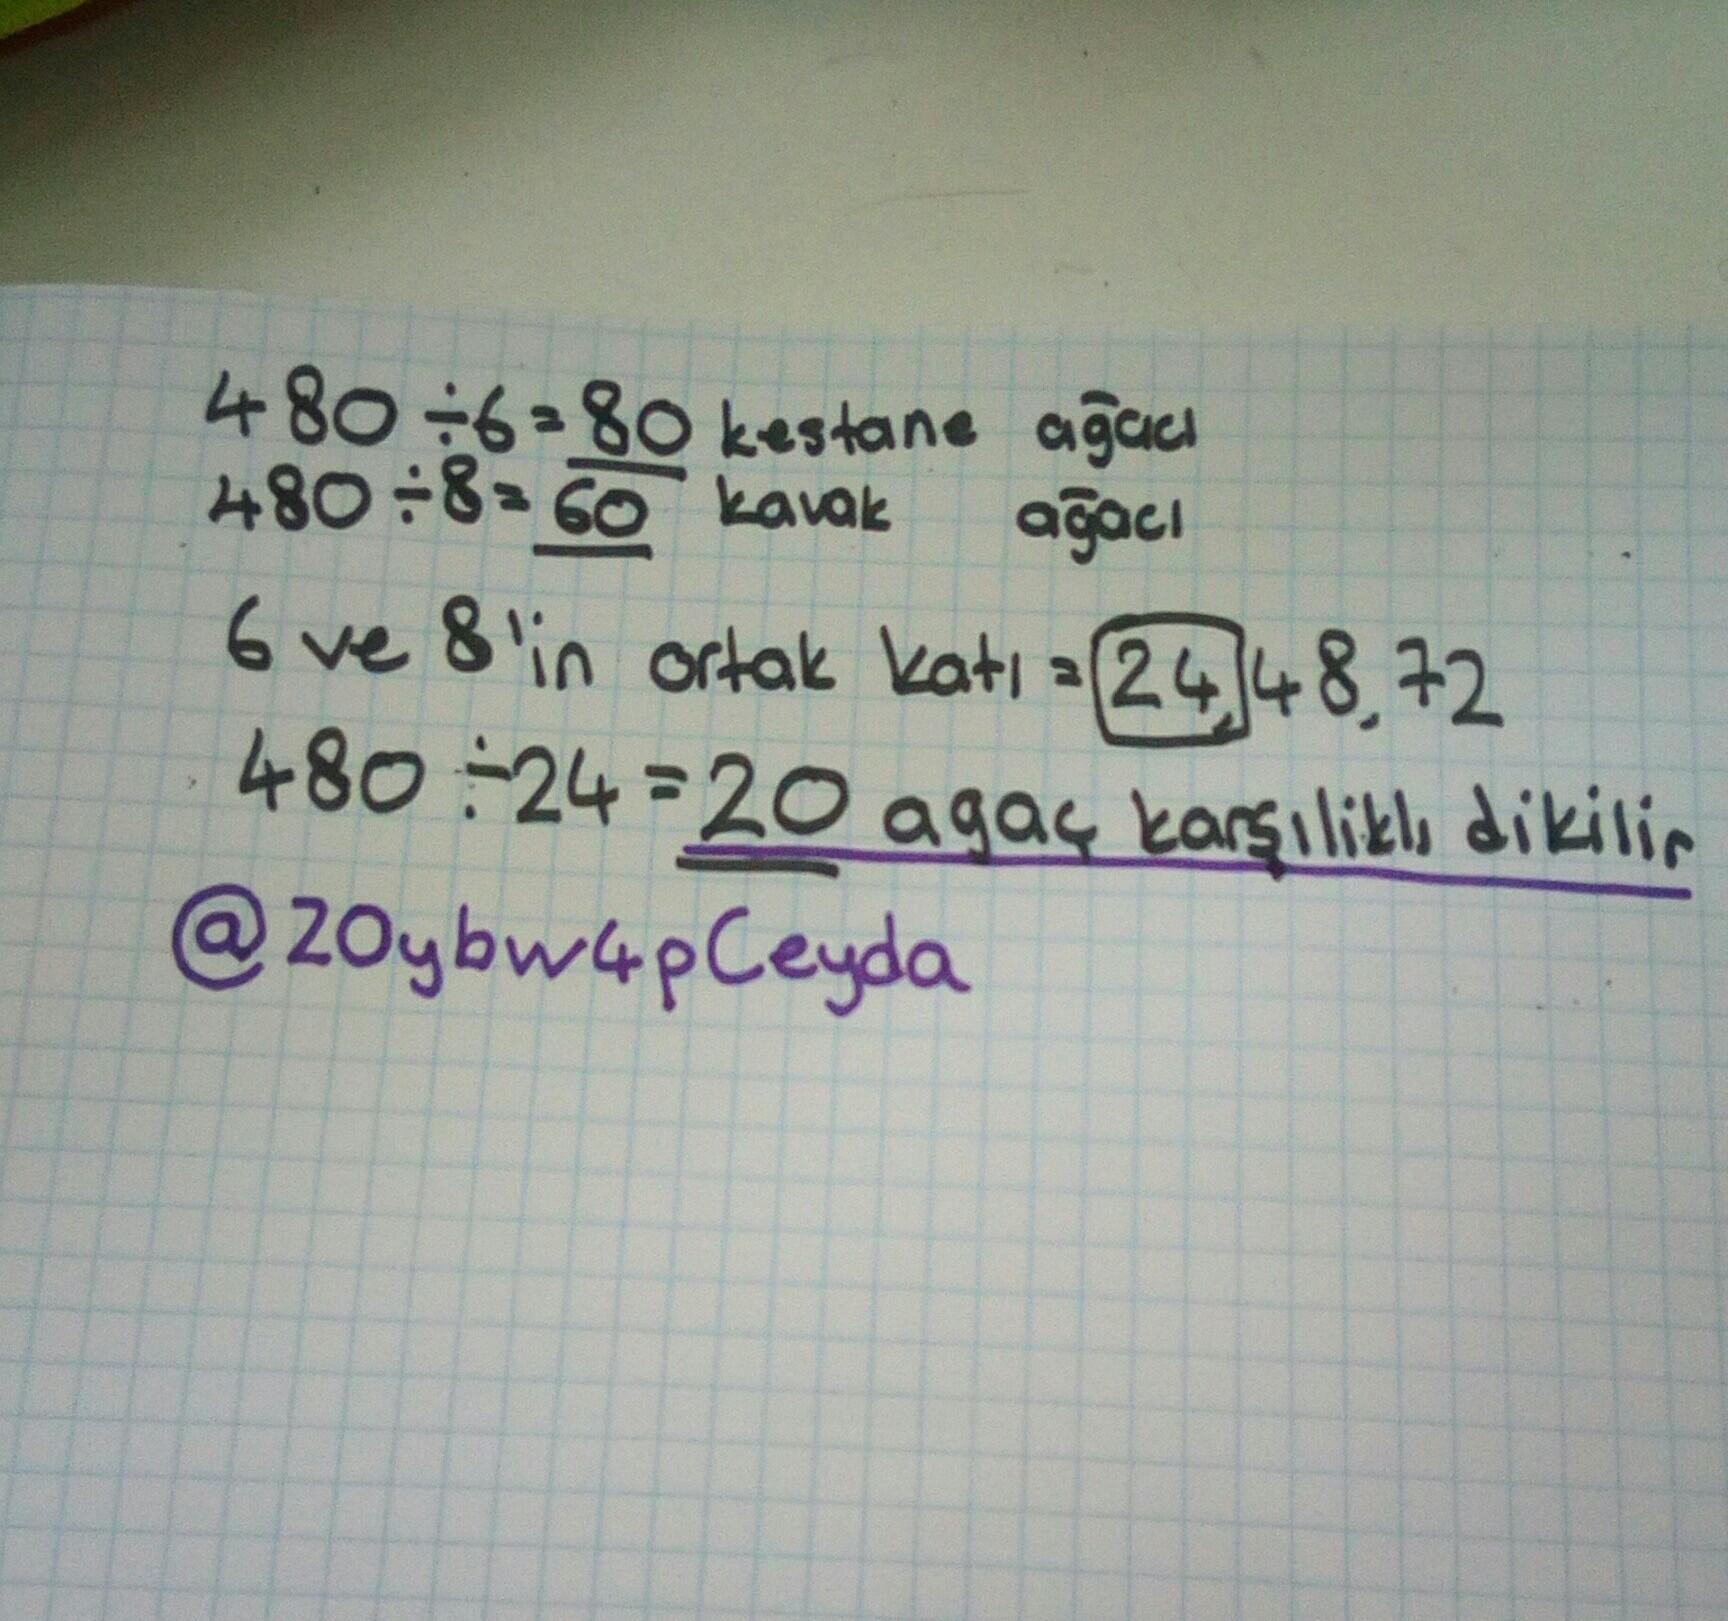 480÷6=80 kestane ağacı
480÷8=60 kavak ağacı
6 ve 8'in ortak katı=24,48,72
480÷24=20 agaç karşılıklı dikilir
@20ybw4pCeyda